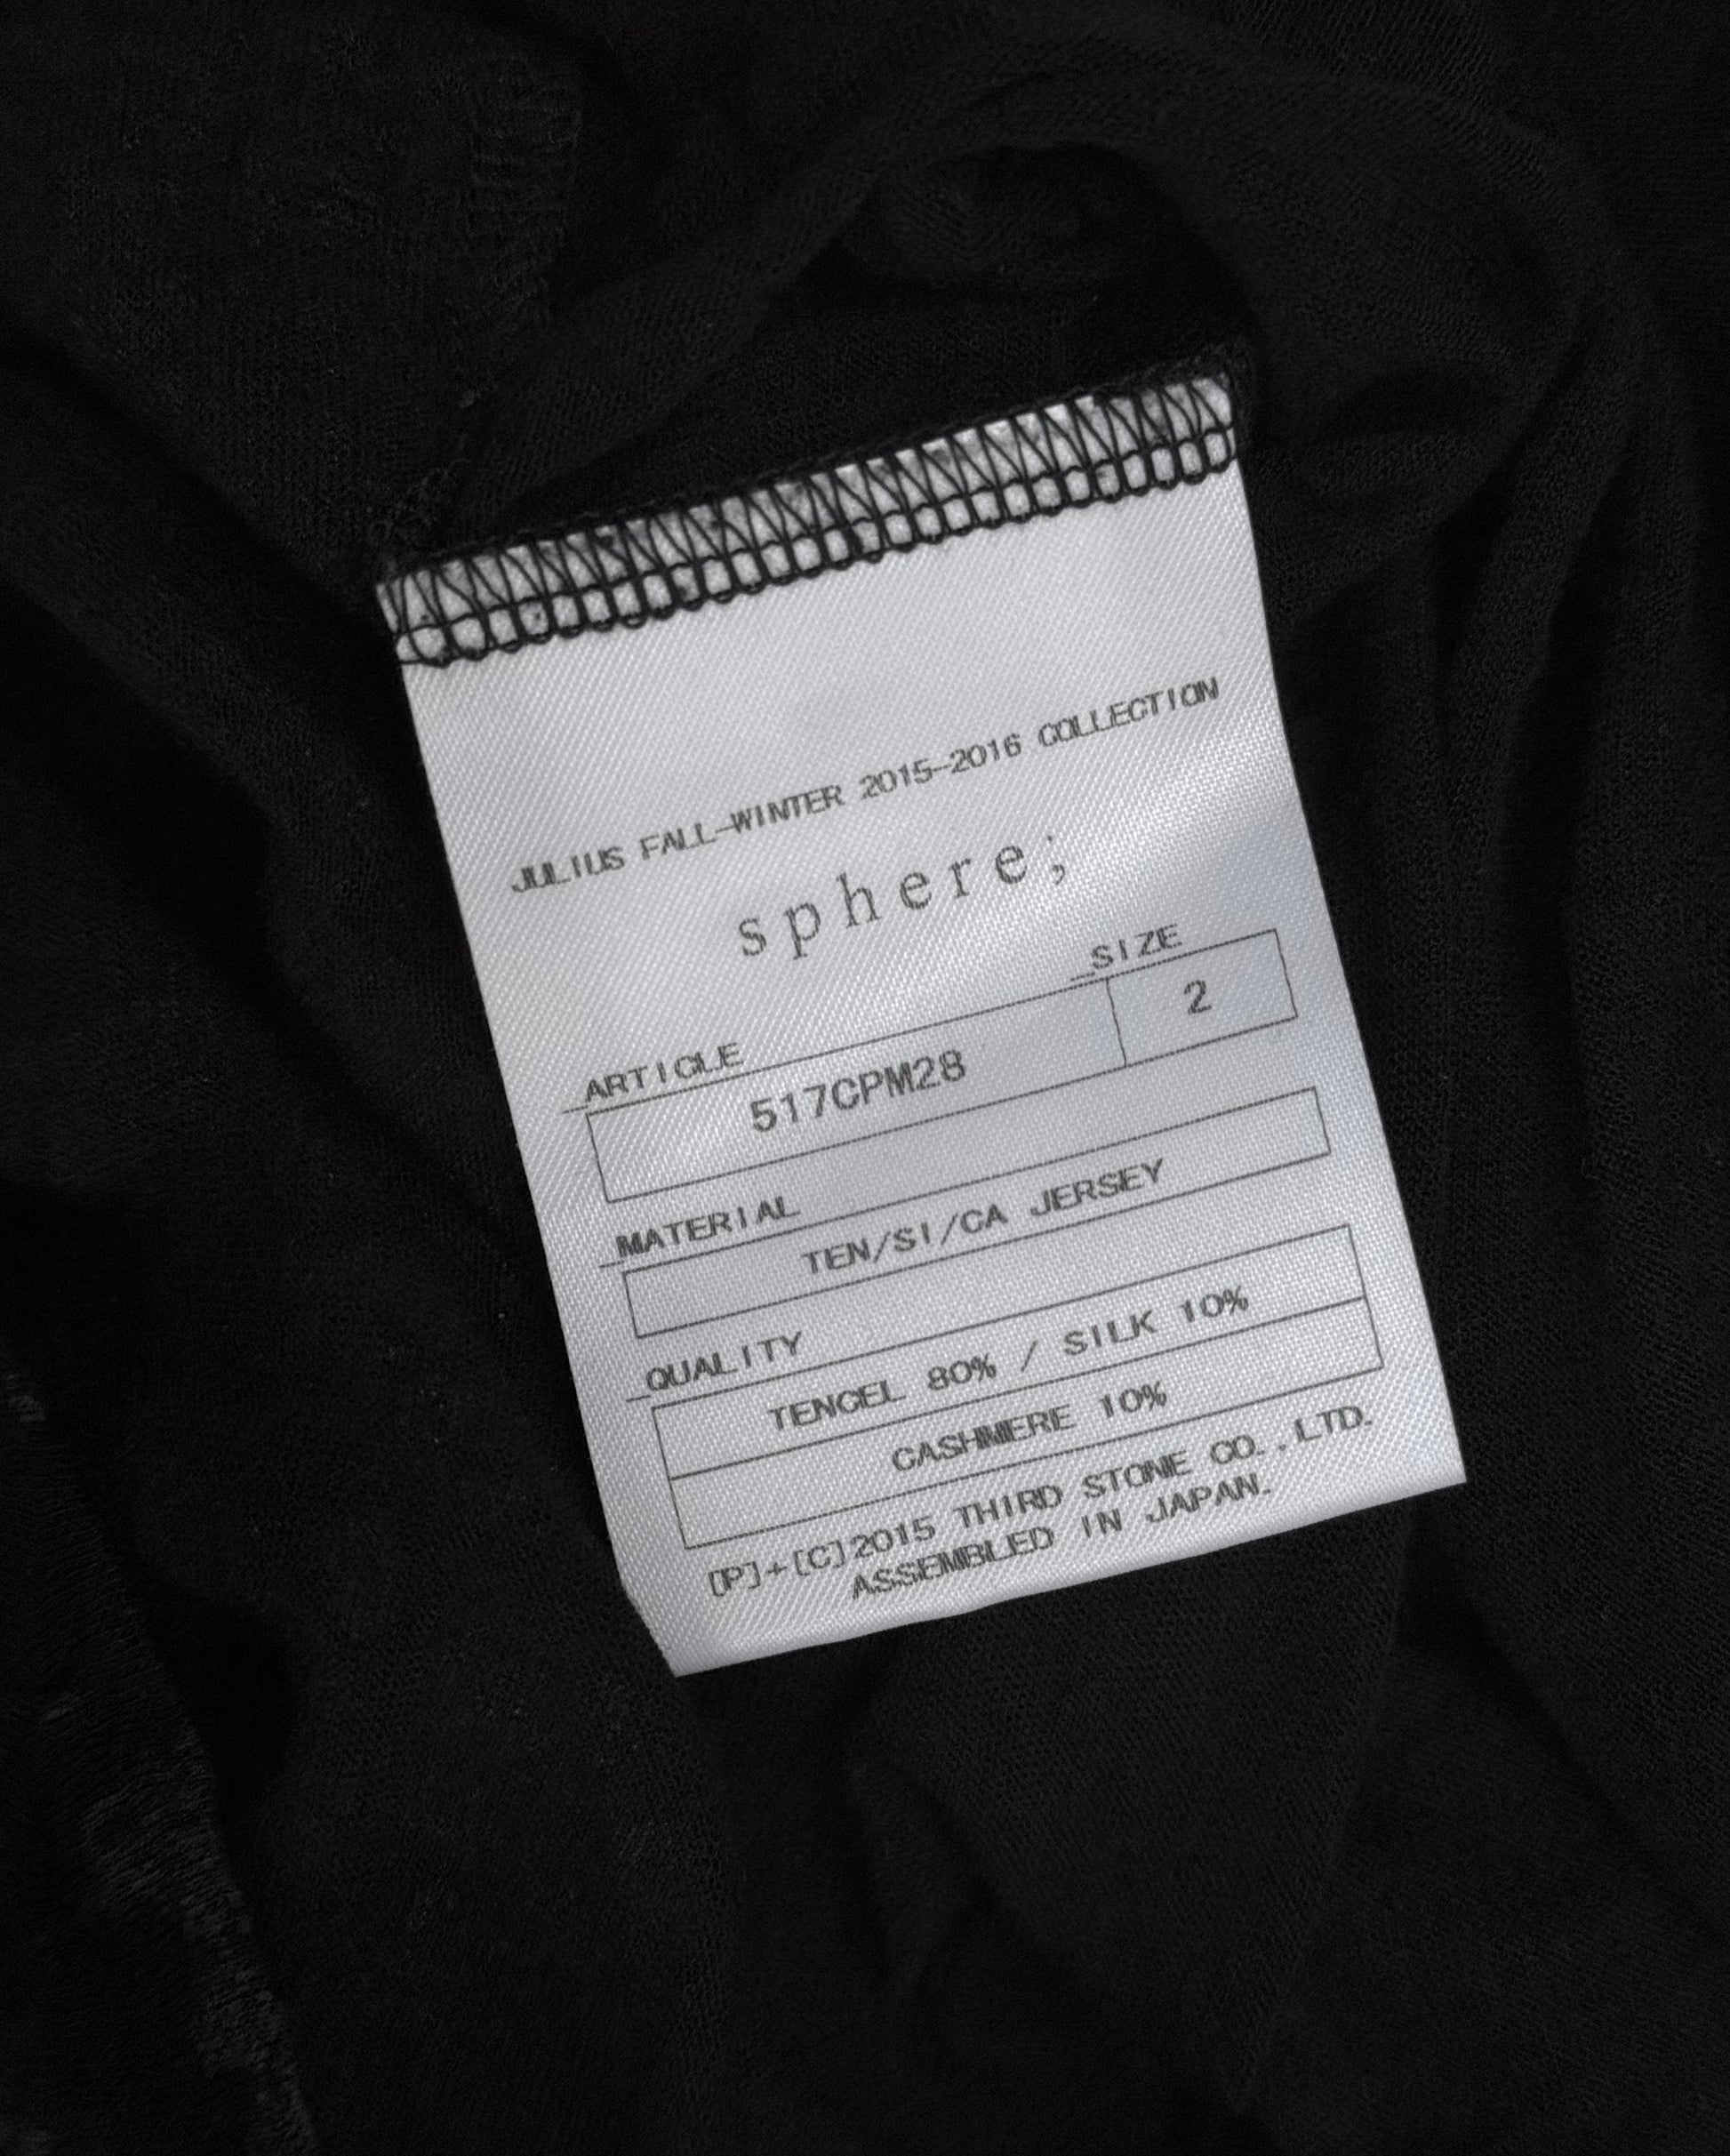 JULIUS FALL-WINTER 2015-2016 COLLECTION
sphere;
_ARTICLE
_SIZE
517CPM28
2
_MATERIAL
TEN/SI/CA JERSEY
_QUALITY
TENCEL 80% / SILK 10%
CASHMERE 10%
[P]+[C]2015 THIRD STONE CO.,LTD.
ASSEMBLED IN JAPAN.